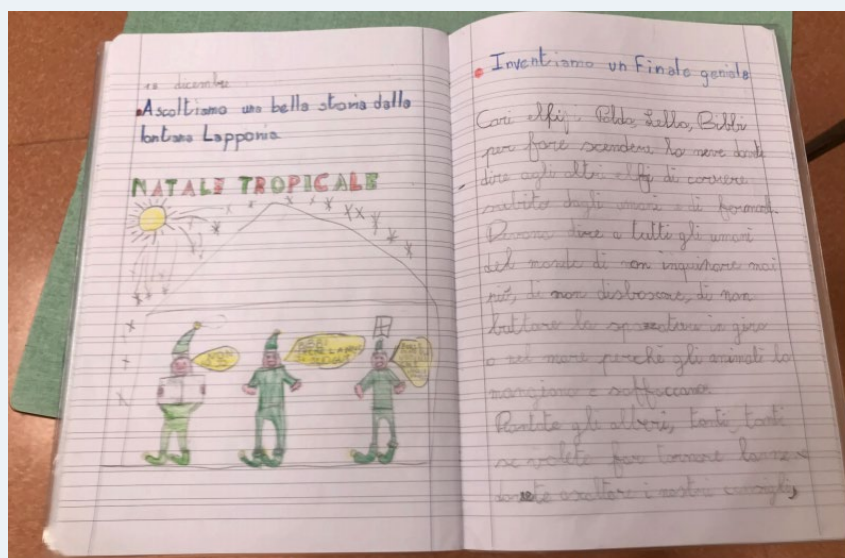 dicembre
Ascoltiamo una bella storia dalla
lontana Lapponia
NATALE TROPICALE
Inventiamo un Finale geniale
Cari elfi: Poldo, Lella, Bibbi
per fare scendere la neve dovete
dire agli altri elfi di correre
subito dagli umani e di fermarli.
Devono dire a tutti gli umani
del mondo di non inquinare mai
più, di non disboscare, di non
buttare la spazzatura in giro
o nel mare perchè gli animali la
mangiano e soffocano.
Piantate gli alberi, tanti, tanti
se volete far tornare
dovete ascoltare i nostri consigli,